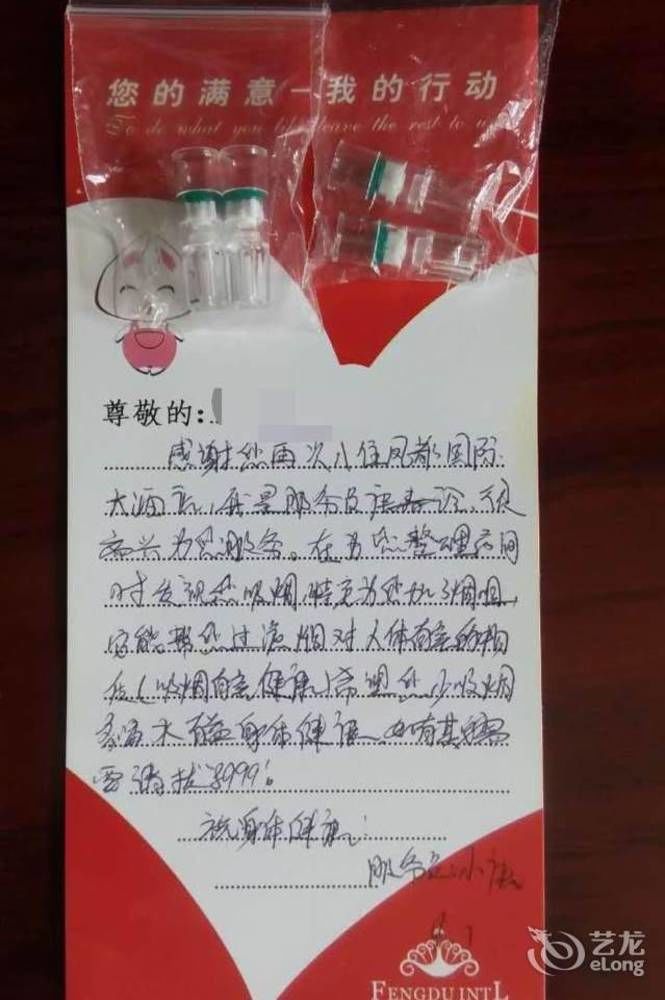 您的满意—我的行动
To do what you like leave the rest to us
尊敬的:
感谢您再次入住凤都国际
大酒店,我是服务员唐春玲、很
高兴为您服务。在为您整理房间
时发现您吸烟,特意为您加了烟咀,
它能帮您过滤烟对人体有害的物
质(吸烟有害健康)希望您少吸烟
多喝水 有益身体健康、如有其它需
要请拔打999!
祝:身体健康!
服务员:小唐
FENGDU INT'L
艺龙
eLong